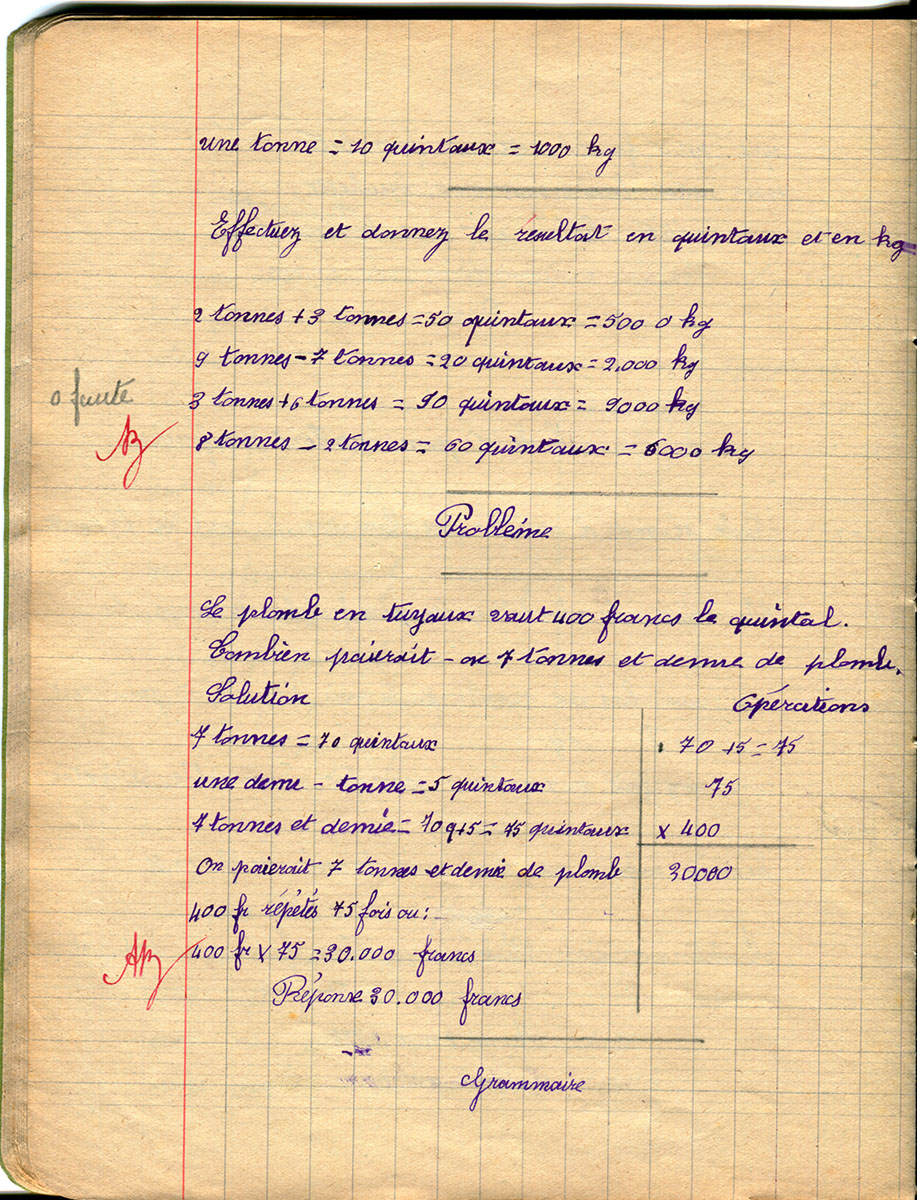 une tonne = 10 quintaux = 1000 kg
Effectuez et donnez le résultat en quintaux et en kg
2 tonnes + 3 tonnes = 50 quintaux = 5000 kg
9 tonnes - 7 tonnes = 20 quintaux = 2.000 kg
3 tonnes + 6 tonnes = 90 quintaux = 9000 kg
0 faute
8 tonnes - 2 tonnes = 60 quintaux = 6000 kg
B
Probléme
Le plomb en tuyaux vaut 400 francs le quintal.
Combien paierait-on 7 tonnes et demie de plomb.
Solution
Opérations
7 tonnes = 70 quintaux
70 + 5 = 75
une demi-tonne = 5 quintaux
75
7 tonnes et demie = 70 q + 5 = 75 quintaux
x 400
On paierait 7 tonnes et demie de plomb
30000
400 fr répétés 75 fois ou :
400 fr x 75 = 30.000 francs
AB
Réponse 30.000 francs
Grammaire